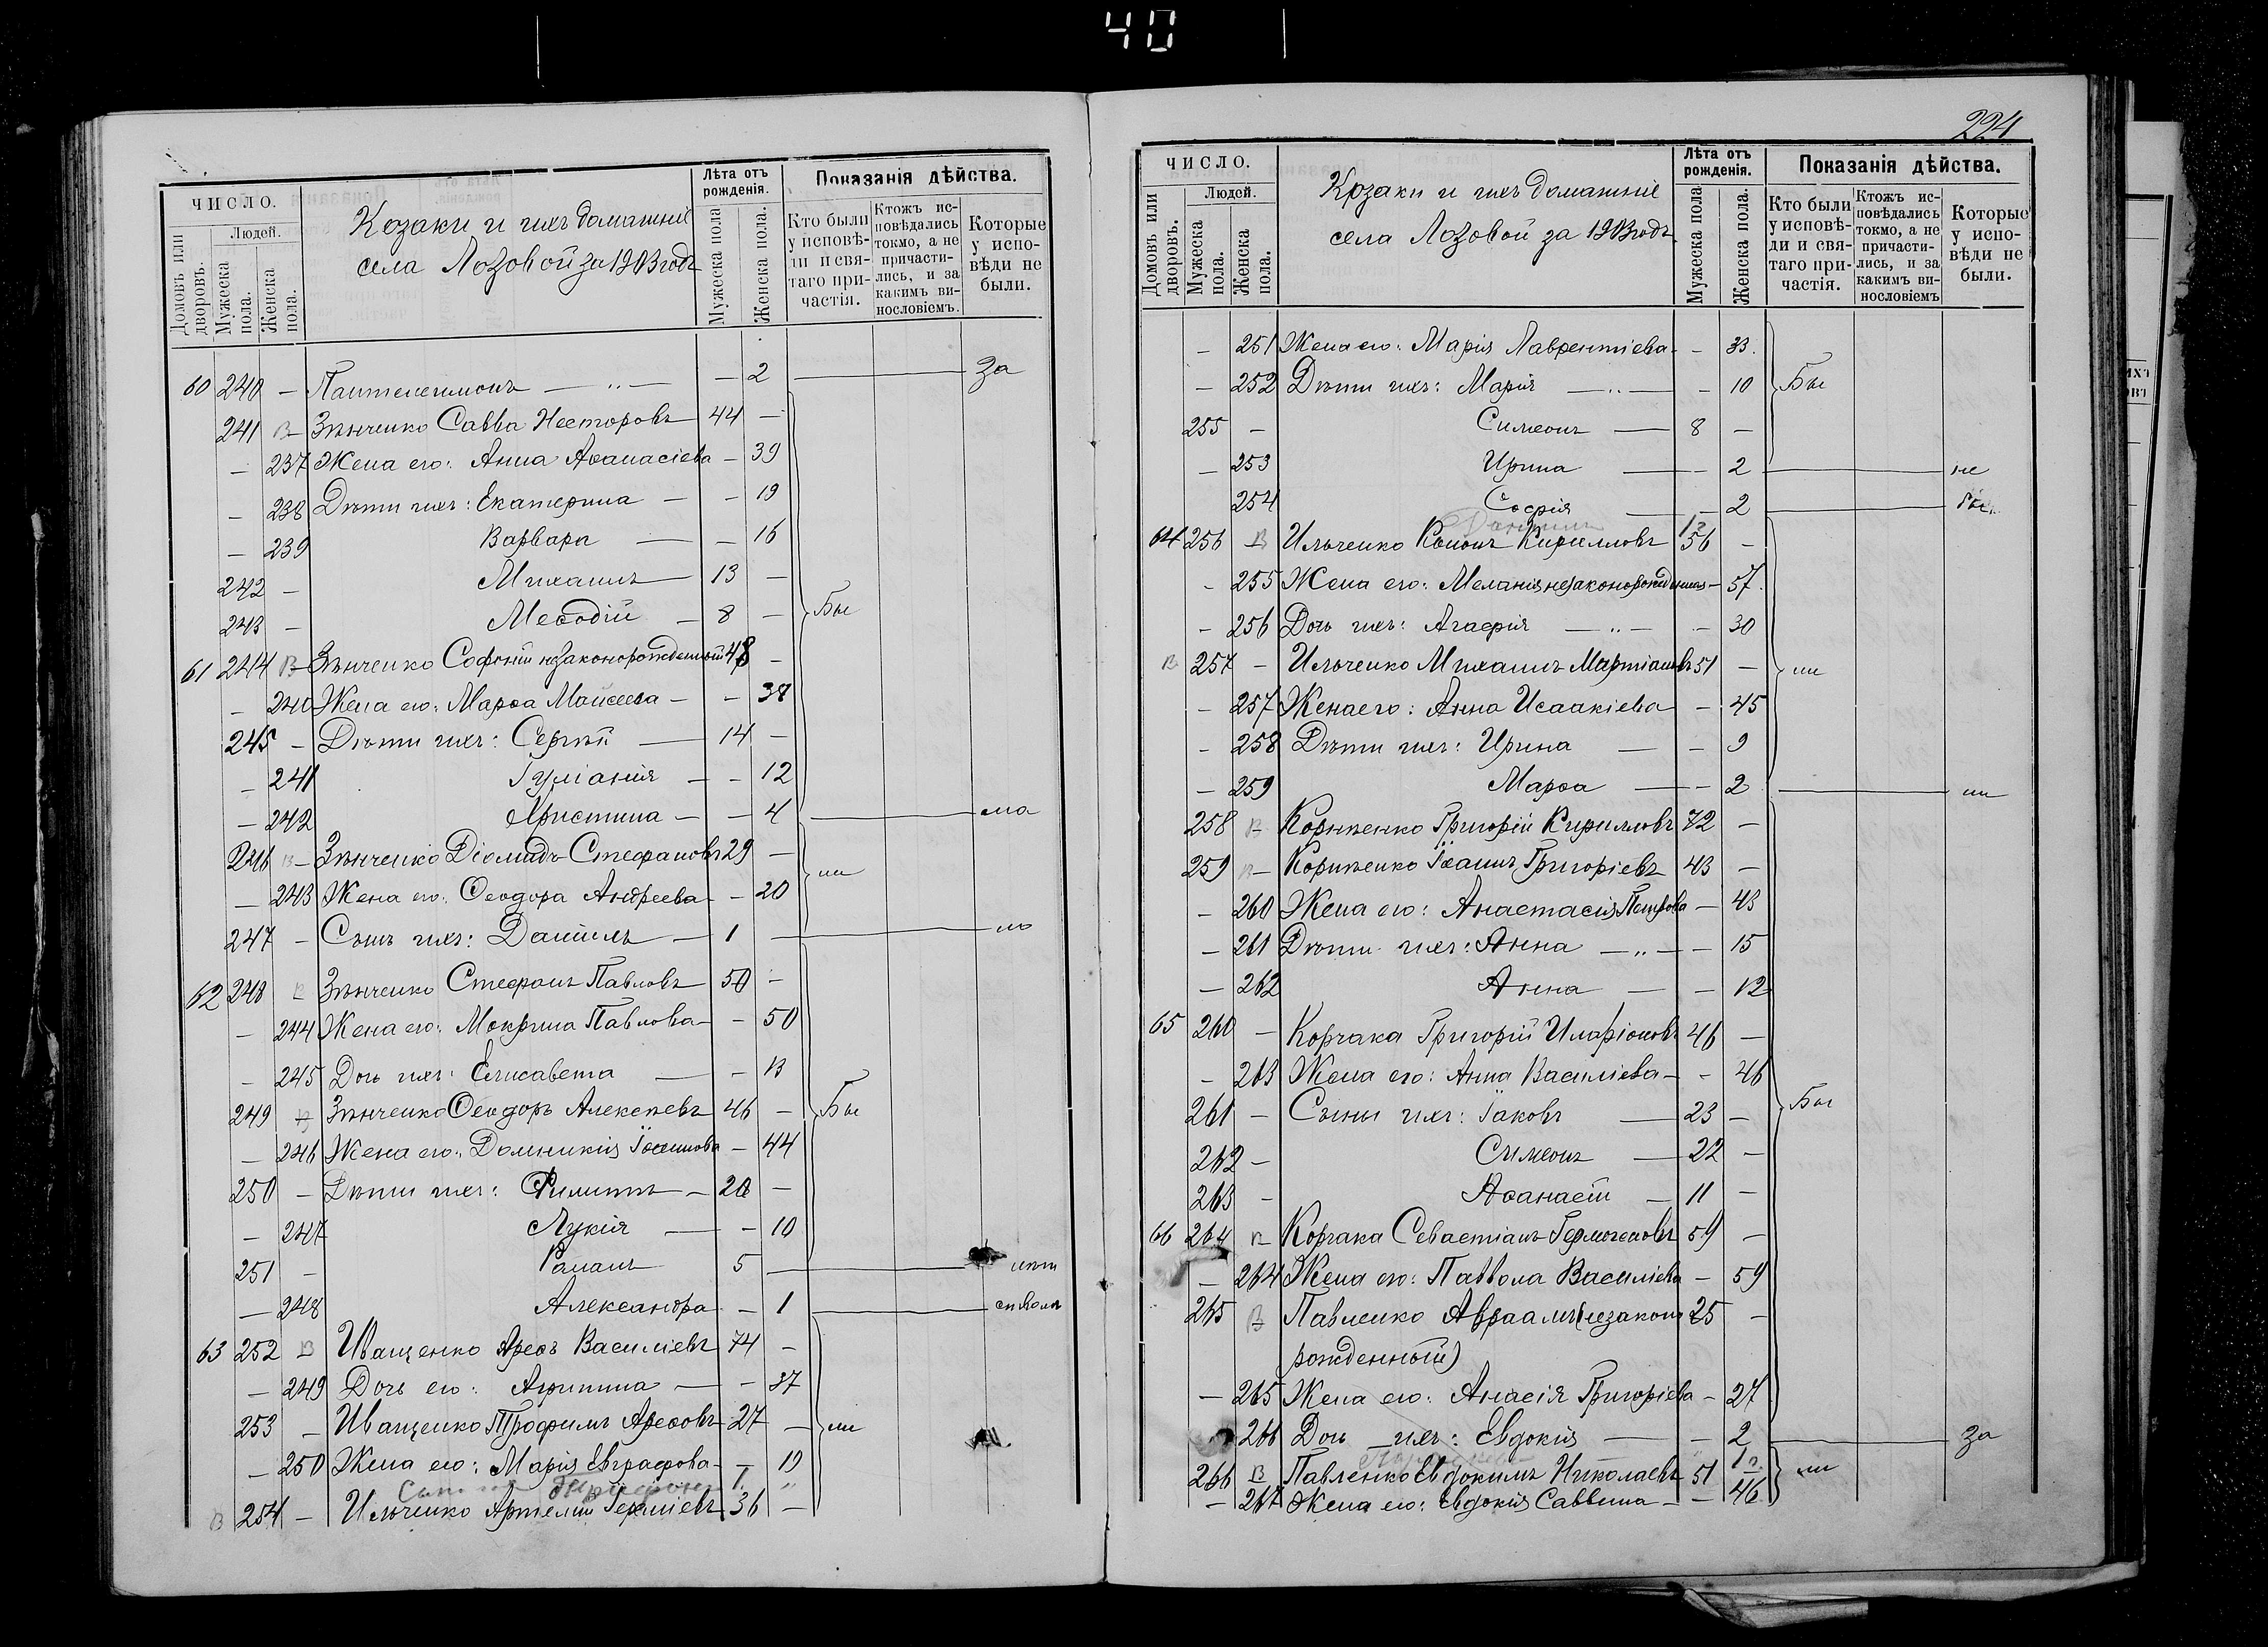 40
ЧИСЛО.
Домовъ или дворовъ.
Людей.
Мужеска пола.
Женска пола.
Козаки и ихъ домашніе
села Лозовой за 1903 годъ
Лѣта отъ рожденія.
Мужеска пола
Женска пола.
Показанія дѣйства.
Кто были у исповѣди и святаго причастія.
Ктожъ исповѣдались токмо, а не причастились, и за какимъ винословіемъ.
Которые у исповѣди не были.
60 240 — Пантелеимонъ — „ — — 2 За
241 В Зѣнченко Савва Несторовъ 44 —
— 237 Жена его: Анна Аѳанасіева — 39
— 238 Дѣти ихъ: Екатерина — — 19
— 239 Варвара — — 16
242 — Михаилъ — 13 —
243 — Меѳодій — 8 — Бы
61 244 В Зѣнченко Софоній незаконорожденный 48 —
— 240 Жена его: Марѳа Моисеева — — 38
245 — Дѣти ихъ: Сергѣй — 14 —
— 241 Іуліанія — — 12
— 242 Христина — — 4 ма
246 В — Зѣнченко Діомидъ Стефановъ 29 —
— 243 Жена его: Ѳеодора Андреева — 20 ли
247 — Сынъ ихъ: Даніилъ — 1 — ло
62 248 В Зѣнченко Стефанъ Павловъ 50 —
— 244 Жена его: Мокрина Павлова — — 50
— 245 Дочь ихъ: Елисавета — — 13
249 В Зѣнченко Ѳеодоръ Алексѣевъ 46 — Бы
— 246 Жена его: Домникія — 44
250 — Дѣти ихъ: Филиппъ — 20 —
— 247 Лукія — — 10
251 — Романъ 5 — лѣт
— 248 Александра — 1 ствомъ
63 252 В Иващенко Арефъ Василіевъ 74 —
— 249 Дочь его: Агрипина — — 37
253 — Иващенко Трофимъ Арефовъ 27 — ли
— 250 Жена его: Марія Евграфова — — 19
В 254 — Ильченко Артемій 36 —
224
ЧИСЛО.
Домовъ или дворовъ.
Людей.
Мужеска пола.
Женска пола.
Козаки и ихъ домашніе
села Лозовой за 1903 годъ
Лѣта отъ рожденія.
Мужеска пола
Женска пола.
Показанія дѣйства.
Кто были у исповѣди и святаго причастія.
Ктожъ исповѣдались токмо, а не причастились, и за какимъ винословіемъ
Которые у исповѣди не были.
— 251 Жена его: Марія Лаврентіева — 33.
— 252 Дѣти ихъ: Марія — „ — — 10 Бы
255 — Симеонъ — 8 —
— 253 Ирина — — 2 не
254 Софія — — 2 бы
64 256 В Ильченко Кононъ Кирилловъ 56 —
— 255 Жена его: Меланія незаконорожденная — 57.
— 256 Дочь ихъ: Агафія — „ — — 30
В 257 — Ильченко Михаилъ Мартіановъ 51 — ли
— 257 Жена его: Анна Исаакіева — 45
— 258 Дѣти ихъ: Ирина — — 9
— 259 Марѳа — — 2 ли
258 В Корнѣенко Григорій Кирилловъ 72 —
259 В — Корнѣенко Іоаннъ Григоріевъ 43 —
— 260 Жена его: Анастасія Петрова — 43
— 261 Дѣти ихъ: Анна — „ — — 15
— 262 Анна — — 12
65 260 — Корчака Григорій Иларіоновъ 46 —
— 263 Жена его: Анна Василіева — — 46
261 — Сыны ихъ: Іаковъ — 23 — Бы
262 — Симеонъ — 22 —
263 — Аѳанасій — 11 —
66 264 В Корчака Севастіанъ Гермогеновъ 59 —
— 264 Жена его: Паввола Василіева — 59
265 В Павленко Авраамъ (незаконо 25 —
рожденный)
— 265 Жена его: Анасія Григоріева — 27
266 Дочь ихъ: Евдокія — — 2 За
266 В Павленко Евдокимъ Николаевъ 51 ли
— 267 Жена его: Евдокія Саввина — — 46